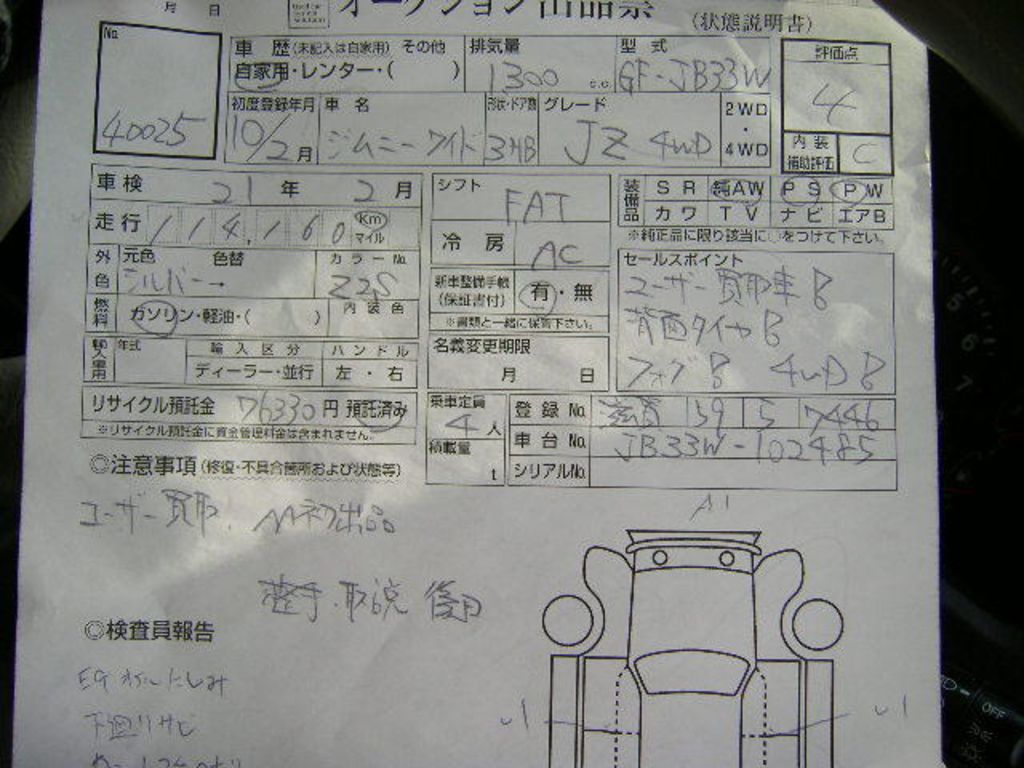 月 日 オークション出品票 (状態説明書)
No.
40025
車歴(未記入は自家用) その他
自家用・レンター・( )
排気量
1300 c.c.
型式
GF-JB33W
評価点
4
内装
補助評価 C
初度登録年月
10/2月
車名
ジムニーワイド
形状・ドア数
3HB
グレード
JZ 4WD
2WD
・
4WD
車検 21年 2月
走行 114,160 Km
マイル
外色 元色 色替 カラーNo.
シルバー→ Z2S
燃料 ガソリン・軽油・( ) 内装色
輸入車用 年式 輸入区分 ハンドル
ディーラー・並行 左・右
リサイクル預託金 76330円 預託済み
※リサイクル預託金に資金管理料金は含まれません。
シフト FAT
冷房 AC
新車整備手帳
(保証書付) 有・無
※書類と一緒に保管下さい。
名義変更期限
月 日
乗車定員
4人
積載量
t
装備品 SR 純AW PS PW
カワ TV ナビ エアB
※純正品に限り該当に○をつけて下さい。
セールスポイント
ユーザー買取車B
背面タイヤB
フォグB 4WDB
登録No. 滋賀 159 5 7446
車台No. JB33W-102485
シリアルNo.
◎注意事項(修復・不具合箇所および状態等)
ユーザー買取.
出品
整手.取説 後日
◎検査員報告
EGオイルにじみ
下廻りサビ
A1
U1 U1
OFF
5
6
7